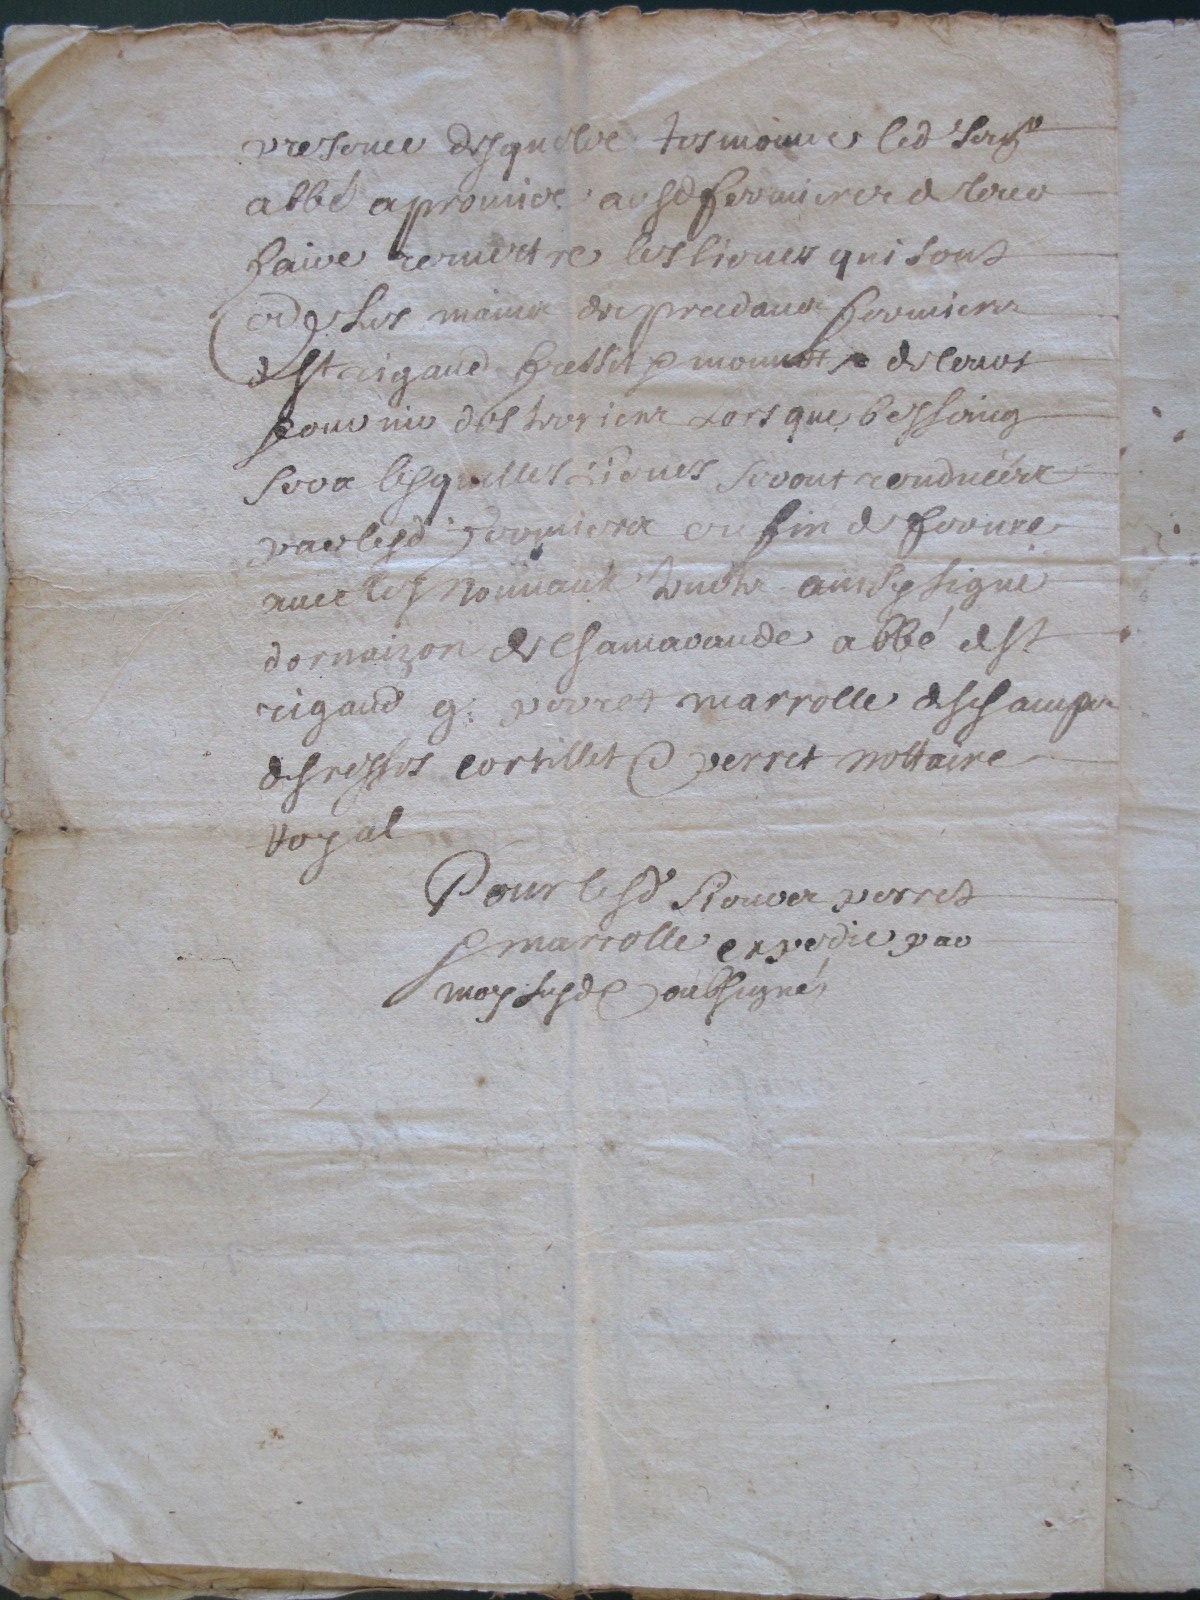 presence desquels tesmoins led Sr
abbé a promis ausd fermiers de leur
faire remettre les lieues qui sont
es mains des precedans fermiers
de St rigaud &
fournir des terriers Lors que bessoing
sera lesquelles Lieues seront rendues
par lesd fermiers en fin de ferme
avec les Nouveaux ainsy signé
dornaizon de Chamarande abbé de St
rigaud g. perret marrolle deschamps
desressis cortillet & perret nottaire
Royal
Pour lesd Sieurs perret
& marrolle expedie par
moy susd soubsigné